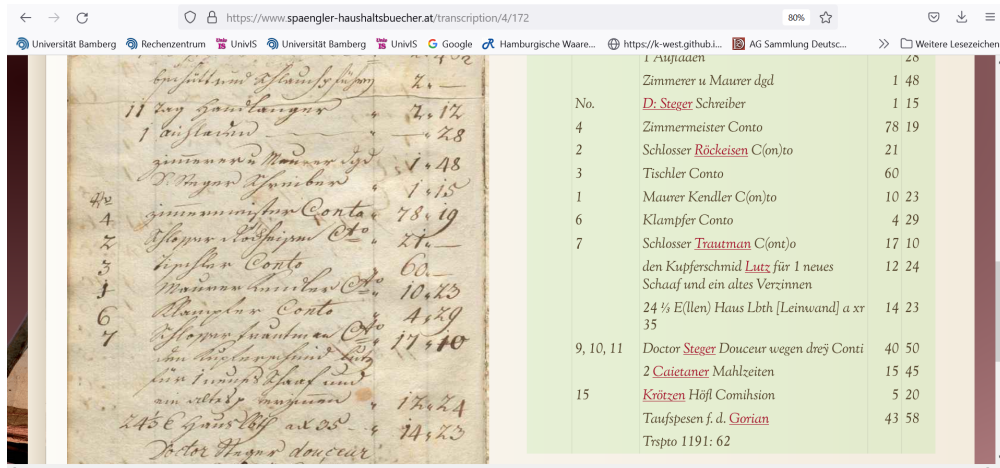 https://www.spaengler-haushaltsbuecher.at/transcription/4/172
80%
Universität Bamberg
Rechenzentrum
UnivIS
Universität Bamberg
UnivIS
Google
Hamburgische Waare...
https://k-west.github.i...
AG Sammlung Deutsc...
Weitere Lesezeichen
2.-
11 Tag Handlanger " 2.12
1 aichladen " -.28
zimmerer u Maurer dgd 1.48
D. Steger Schreiber " 1.15
4 zimmermeister Conto " 78.19
2 Schlosser Cto " 21.-
3 Tischler Conto 60.-
1 Maurer Kendler Cto " 10.23
6 Klampfer Conto " 4.29
7 Schlosser Trautman Cto 17.10
den Kupferschmid Lutz
für 1 neues Schaaf und
ein altes verzinnen " 12.24
14.23
Doctor Steger douceur
1 Aufladen 28
Zimmerer u Maurer dgd 1 48
No. D: Steger Schreiber 1 15
4 Zimmermeister Conto 78 19
2 Schlosser Röckeisen C(on)to 21
3 Tischler Conto 60
1 Maurer Kendler C(on)to 10 23
6 Klampfer Conto 4 29
7 Schlosser Trautman C(ont)o 17 10
den Kupferschmid Lutz für 1 neues 12 24
Schaaf und ein altes Verzinnen
24 ⅓ E(llen) Haus Lbth [Leinwand] a xr 14 23
35
9, 10, 11 Doctor Steger Douceur wegen dreÿ Conti 40 50
2 Caietaner Mahlzeiten 15 45
15 Krötzen Höfl Comihsion 5 20
Taufspesen f. d. Gorian 43 58
Trspto 1191: 62